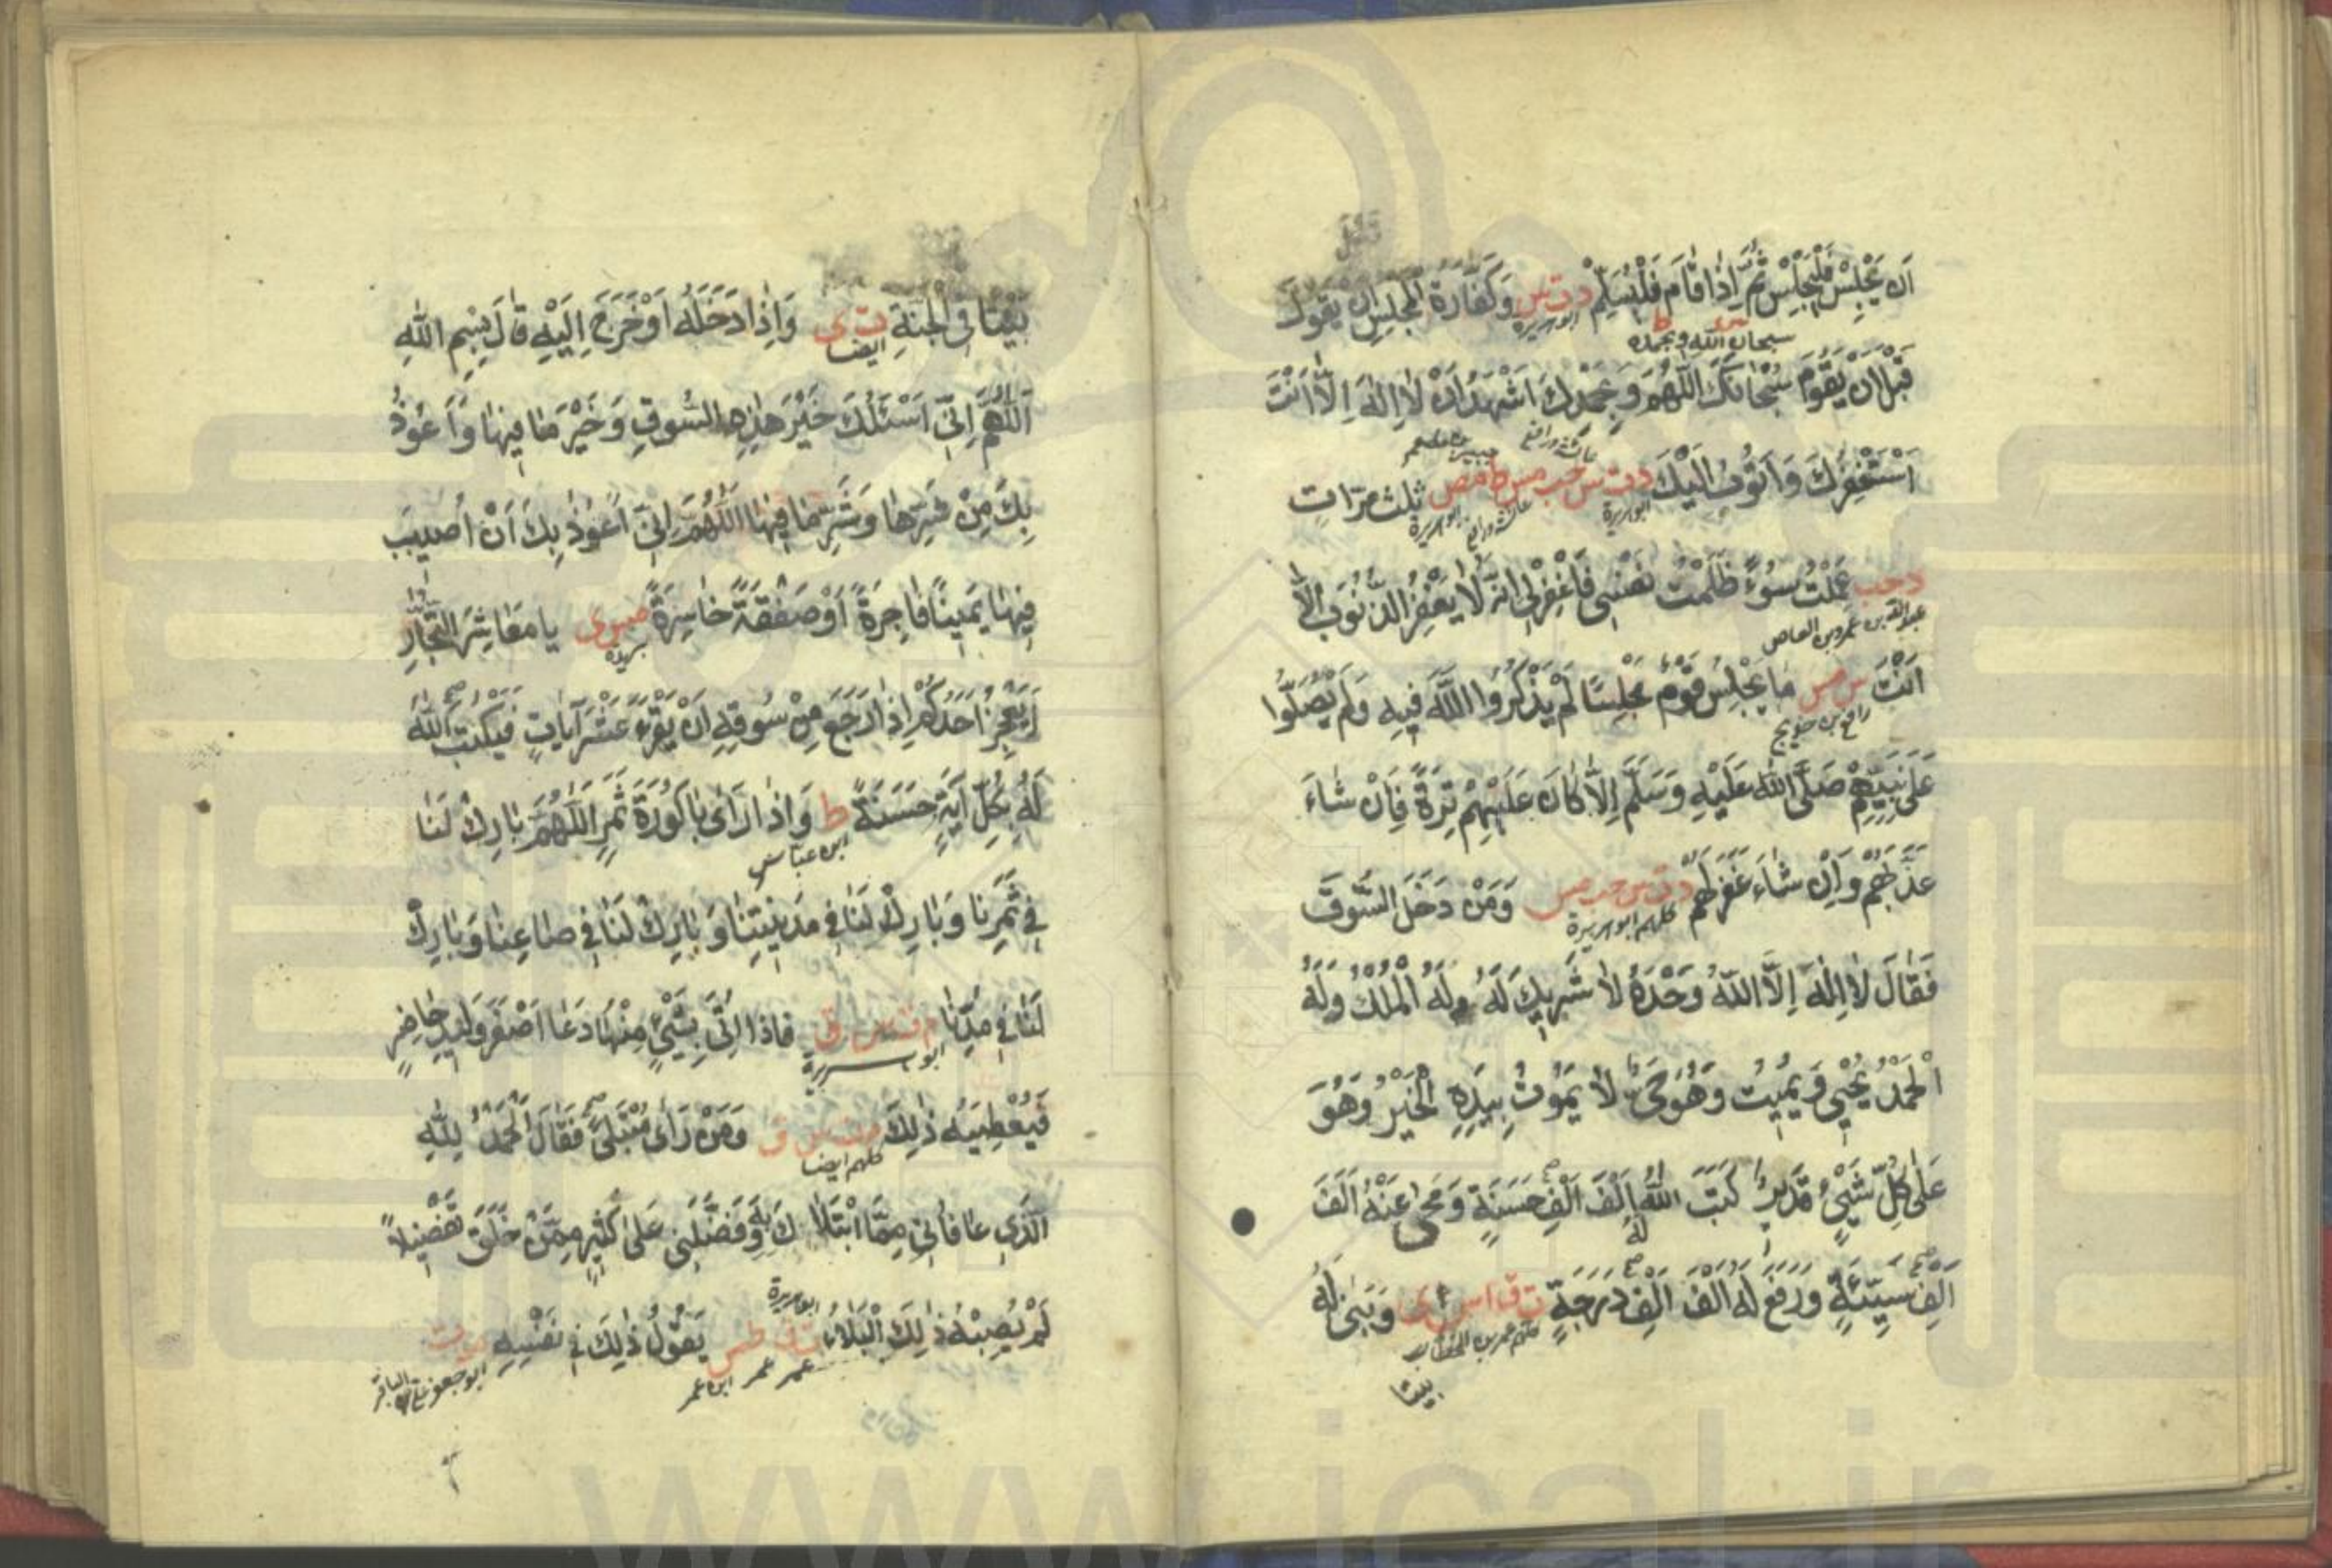 اَن يَجْلِسَ فَلْيَجْلِسْ ثُمَّ اِذَا قَامَ فَلْيُسَلِّمْ د ت س وَكَفَّارَةُ الْمَجْلِسِ اَنْ يَقُولَ
ابو هريرة
سبحان الله وبحمده
قَبْلَ اَنْ يَقُومَ سُبْحَانَكَ اللّٰهُمَّ وَبِحَمْدِكَ اَشْهَدُ اَنْ لَا اِلٰهَ اِلَّا اَنْتَ
اَسْتَغْفِرُكَ وَاَتُوبُ اِلَيْكَ د ت س حب مس ط مص ثلث مَرّاتٍ
ابو هريرة ابو هريرة
د حب عَمِلْتُ سُوءً ظَلَمْتُ نَفْسِي فَاغْفِرْلِي اِنَّهُ لَا يَغْفِرُ الذُّنُوبَ اِلَّا
عبد الله بن عمرو بن العاص
اَنْتَ س مس مَا يَجْلِسُ قَوْمٌ مَجْلِسًا لَمْ يَذْكُرُوا اللّٰهَ فِيهِ وَلَمْ يُصَلُّوا
رافع بن خديج
عَلٰى نَبِيِّهِمْ صَلَّى اللّٰهُ عَلَيْهِ وَسَلَّمَ اِلَّا كَانَ عَلَيْهِمْ تِرَةً فَاِنْ شَاءَ
عَذَّبَهُمْ وَاِنْ شَاءَ غَفَرَلَهُمْ د ت س حب مس وَمَنْ دَخَلَ السُّوقَ
كلهم ابو هريرة
فَقَالَ لَا اِلٰهَ اِلَّا اللّٰهُ وَحْدَهُ لَا شَرِيكَ لَهُ لَهُ الْمُلْكُ وَلَهُ
الْحَمْدُ يُحْيِي وَيُمِيتُ وَهُوَ حَيٌّ لَا يَمُوتُ بِيَدِهِ الْخَيْرُ وَهُوَ
عَلٰى كُلِّ شَيْءٍ قَدِيرٌ كَتَبَ اللّٰهُ لَهُ اَلْفَ اَلْفِ حَسَنَةٍ وَمَحٰى عَنْهُ اَلْفَ
اَلْفِ سَيِّئَةٍ وَرَفَعَ لَهُ اَلْفَ اَلْفِ دَرَجَةٍ ت ق مس ى وَبَنٰى لَهُ
كلهم عمر بن الخطاب
بيتا
بَيْتًا فِي الْجَنَّةِ ت ى وَاِذَا دَخَلَهُ اَوْ خَرَجَ اِلَيْهِ قَالَ بِسْمِ اللّٰهِ
ايضا
اَللّٰهُمَّ اِنِّي اَسْئَلُكَ خَيْرَ هٰذِهِ السُّوقِ وَخَيْرَ مَا فِيهَا وَاَعُوذُ
بِكَ مِنْ شَرِّهَا وَشَرِّ مَا فِيهَا اَللّٰهُمَّ اِنِّي اَعُوذُ بِكَ اَنْ اُصِيبَ
فِيهَا يَمِينًا فَاجِرَةً اَوْ صَفْقَةً خَاسِرَةً مس ى يَا مَعَاشِرَ التُّجَّارِ
بريده
اَيَعْجِزُ اَحَدُكُمْ اِذَا رَجَعَ مِنْ سُوقِهِ اَنْ يَقْرَءَ عَشْرَ آيَاتٍ فَيَكْتُبَ اللّٰهُ
لَهُ بِكُلِّ آيَةٍ حَسَنَةً ط وَاِذَا رَاٰى بَاكُورَةَ ثَمَرٍ اَللّٰهُمَّ بَارِكْ لَنَا
ابن عباس
فِي ثَمَرِنَا وَبَارِكْ لَنَا فِي مَدِينَتِنَا وَبَارِكْ لَنَا فِي صَاعِنَا وَبَارِكْ
لَنَا فِي مُدِّنَا م ت س ق فَاذَا اُتِيَ بِشَيْءٍ مِنْهَا دَعَا اَصْغَرَ وَلِيدٍ حَاضِرٍ
ابو هريرة
فَيُعْطِيَهُ ذٰلِكَ م ت س ق وَمَنْ رَاٰى مُبْتَلًى فَقَالَ اَلْحَمْدُ لِلّٰهِ
كلهم ايضا
الَّذِي عَافَانِي مِمَّا ابْتَلَاكَ بِهِ وَفَضَّلَنِي عَلٰى كَثِيرٍ مِمَّنْ خَلَقَ تَفْضِيلًا
ابو هريرة
لَمْ يُصِبْهُ ذٰلِكَ الْبَلَاءُ ت ق طس يَقُولُ ذٰلِكَ فِي نَفْسِهِ مو ت
عمر عمر ابن عمر ابو جعفر الباقر